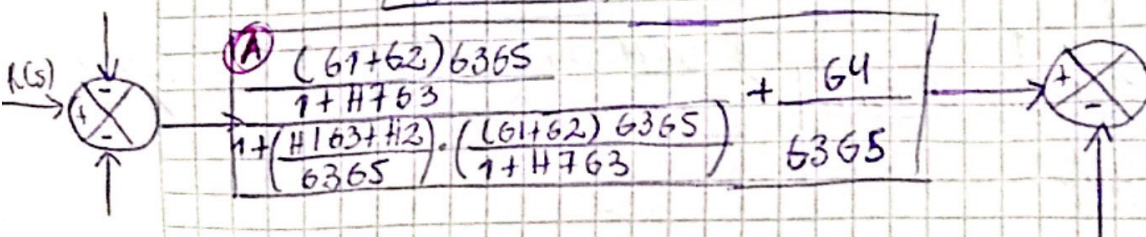 A
R(s)
(G1+G2)G3G5
1+H7G3
1+(H1G3+H2/G3G5)·((G1+G2)G3G5/1+H7G3)
+ G4/G3G5
+ - -
+ -